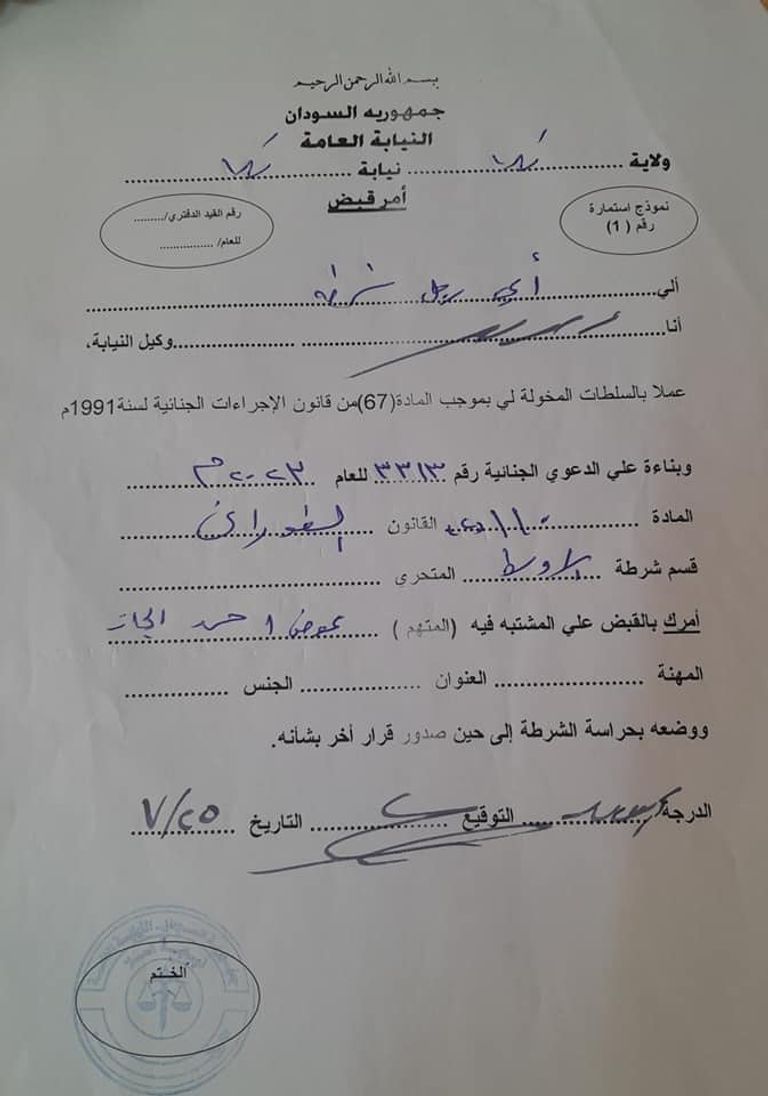 بسم الله الرحمن الرحيم
جمهوريه السودان
النيابة العامة
ولاية كسلا نيابة كسلا
أمر قبض
نموذج استمارة
رقم (1)
رقم القيد الدفتري/.........
للعام/ ................
ألي أي رجل شرطه
أنا ........ وكيل النيابة،
عملا بالسلطات المخولة لي بموجب المادة(67)من قانون الإجراءات الجنائية لسنة1991م
وبناءة علي الدعوي الجنائية رقم ٣٣١٣ للعام ٢٠٢٣م
المادة القانون الطوارئ
قسم شرطة الاوسط المتحري ........
أمرك بالقبض علي المشتبه فيه (المتهم) عوض احمد الجاز
المهنة ........ العنوان ........ الجنس ........
ووضعه بحراسة الشرطة إلى حين صدور قرار أخر بشأنه.
الدرجة التوقيع التاريخ ٧/٢٥
الختم